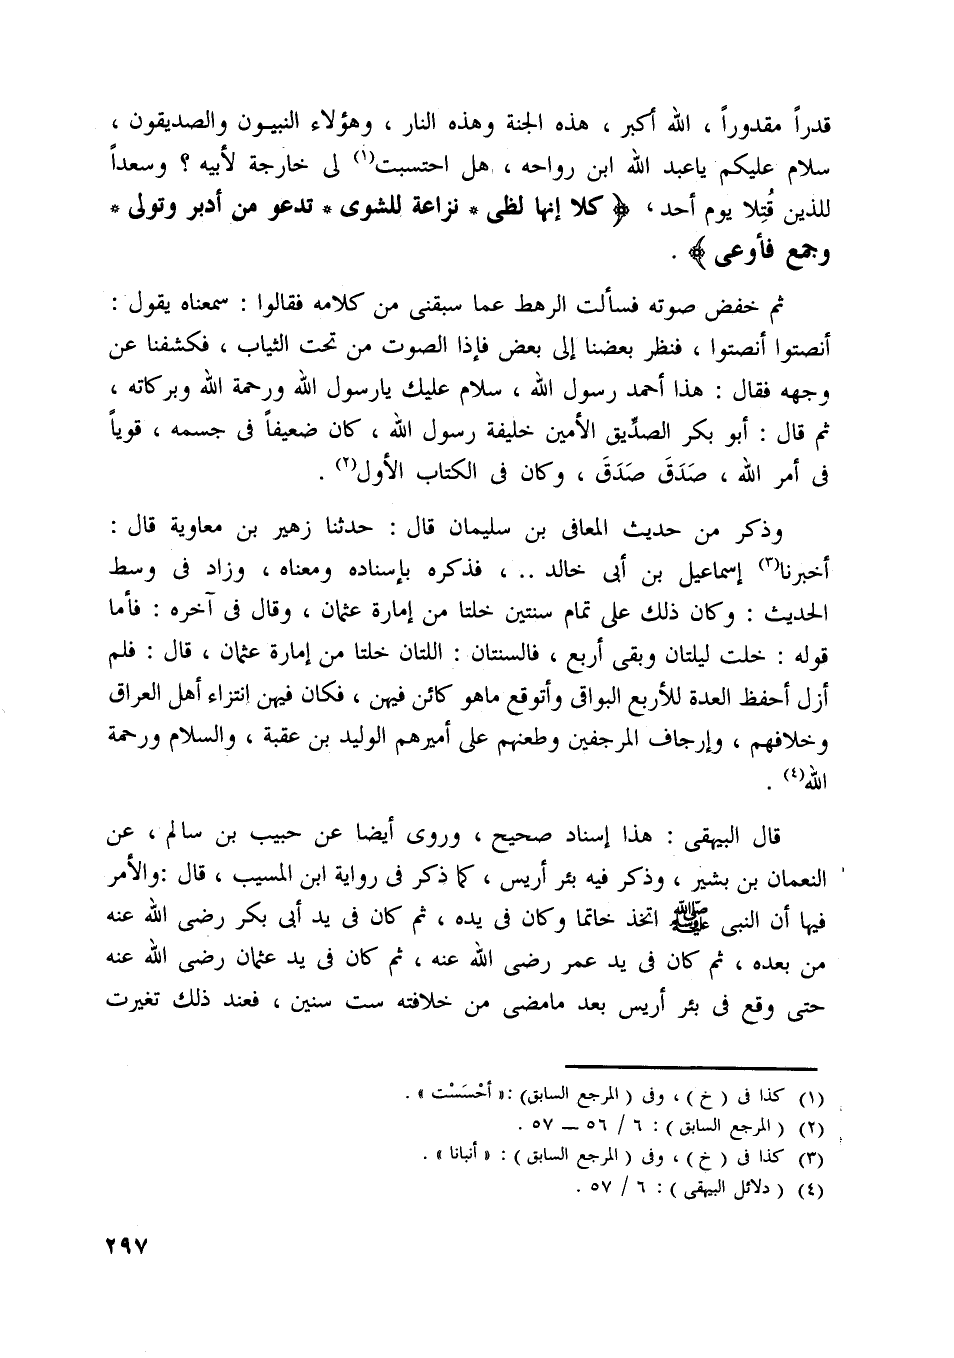 قدراً مقدوراً ، الله أكبر ، هذه الجنة وهذه النار ، وهؤلاء النبيـون والصديقون ،
سلام عليكم ياعبد الله ابن رواحه ، هل احتسبت(١) لى خارجة لأبيه ؟ وسعداً
للذين قُتِلا يوم أحد ، ﴿ كلا إنها لظى * نزاعة للشوى * تدعو من أدبر وتولى *
وجمع فأوعى ﴾ .
ثم خفض صوته فسألت الرهط عما سبقنى من كلامه فقالوا : سمعناه يقول :
أنصتوا أنصتوا ، فنظر بعضنا إلى بعض فإذا الصوت من تحت الثياب ، فكشفنا عن
وجهه فقال : هذا أحمد رسول الله ، سلام عليك يارسول الله ورحمة الله وبركاته ،
ثم قال : أبو بكر الصدِّيق الأمين خليفة رسول الله ، كان ضعيفاً فى جسمه ، قوياً
فى أمر الله ، صَدَقَ صَدَقَ ، وكان فى الكتاب الأول(٢) .
وذكر من حديث المعافى بن سليمان قال : حدثنا زهير بن معاوية قال :
أخبرنا(٣) إسماعيل بن أبى خالد .. ، فذكره بإسناده ومعناه ، وزاد فى وسط
الحديث : وكان ذلك على تمام سنتين خلتا من إمارة عثمان ، وقال فى آخره : فأما
قوله : خلت ليلتان وبقى أربع ، فالسنتان : اللتان خلتا من إمارة عثمان ، قال : فلم
أزل أحفظ العدة للأربع البواقى وأتوقع ماهو كائن فيهن ، فكان فيهن انتزاء أهل العراق
وخلافهم ، وإرجاف المرجفين وطعنهم على أميرهم الوليد بن عقبة ، والسلام ورحمة
الله(٤) .
قال البيهقى : هذا إسناد صحيح ، وروى أيضا عن حبيب بن سالم ، عن
النعمان بن بشير ، وذكر فيه بئر أريس ، كما ذكر فى رواية ابن المسيب ، قال :والأمر
فيها أن النبى ﷺ اتخذ خاتما وكان فى يده ، ثم كان فى يد أبى بكر رضى الله عنه
من بعده ، ثم كان فى يد عمر رضى الله عنه ، ثم كان فى يد عثمان رضى الله عنه
حتى وقع فى بئر أريس بعد مامضى من خلافته ست سنين ، فعند ذلك تغيرت
(١) كذا فى ( خ ) ، وفى ( المرجع السابق) :« أحْسَسْت » .
(٢) ( المرجع السابق ) : ٦ / ٥٦ ــ ٥٧ .
(٣) كذا فى ( خ ) ، وفى ( المرجع السابق ) : « أنبانا » .
(٤) ( دلائل البيهقى ) : ٦ / ٥٧ .
٢٩٧